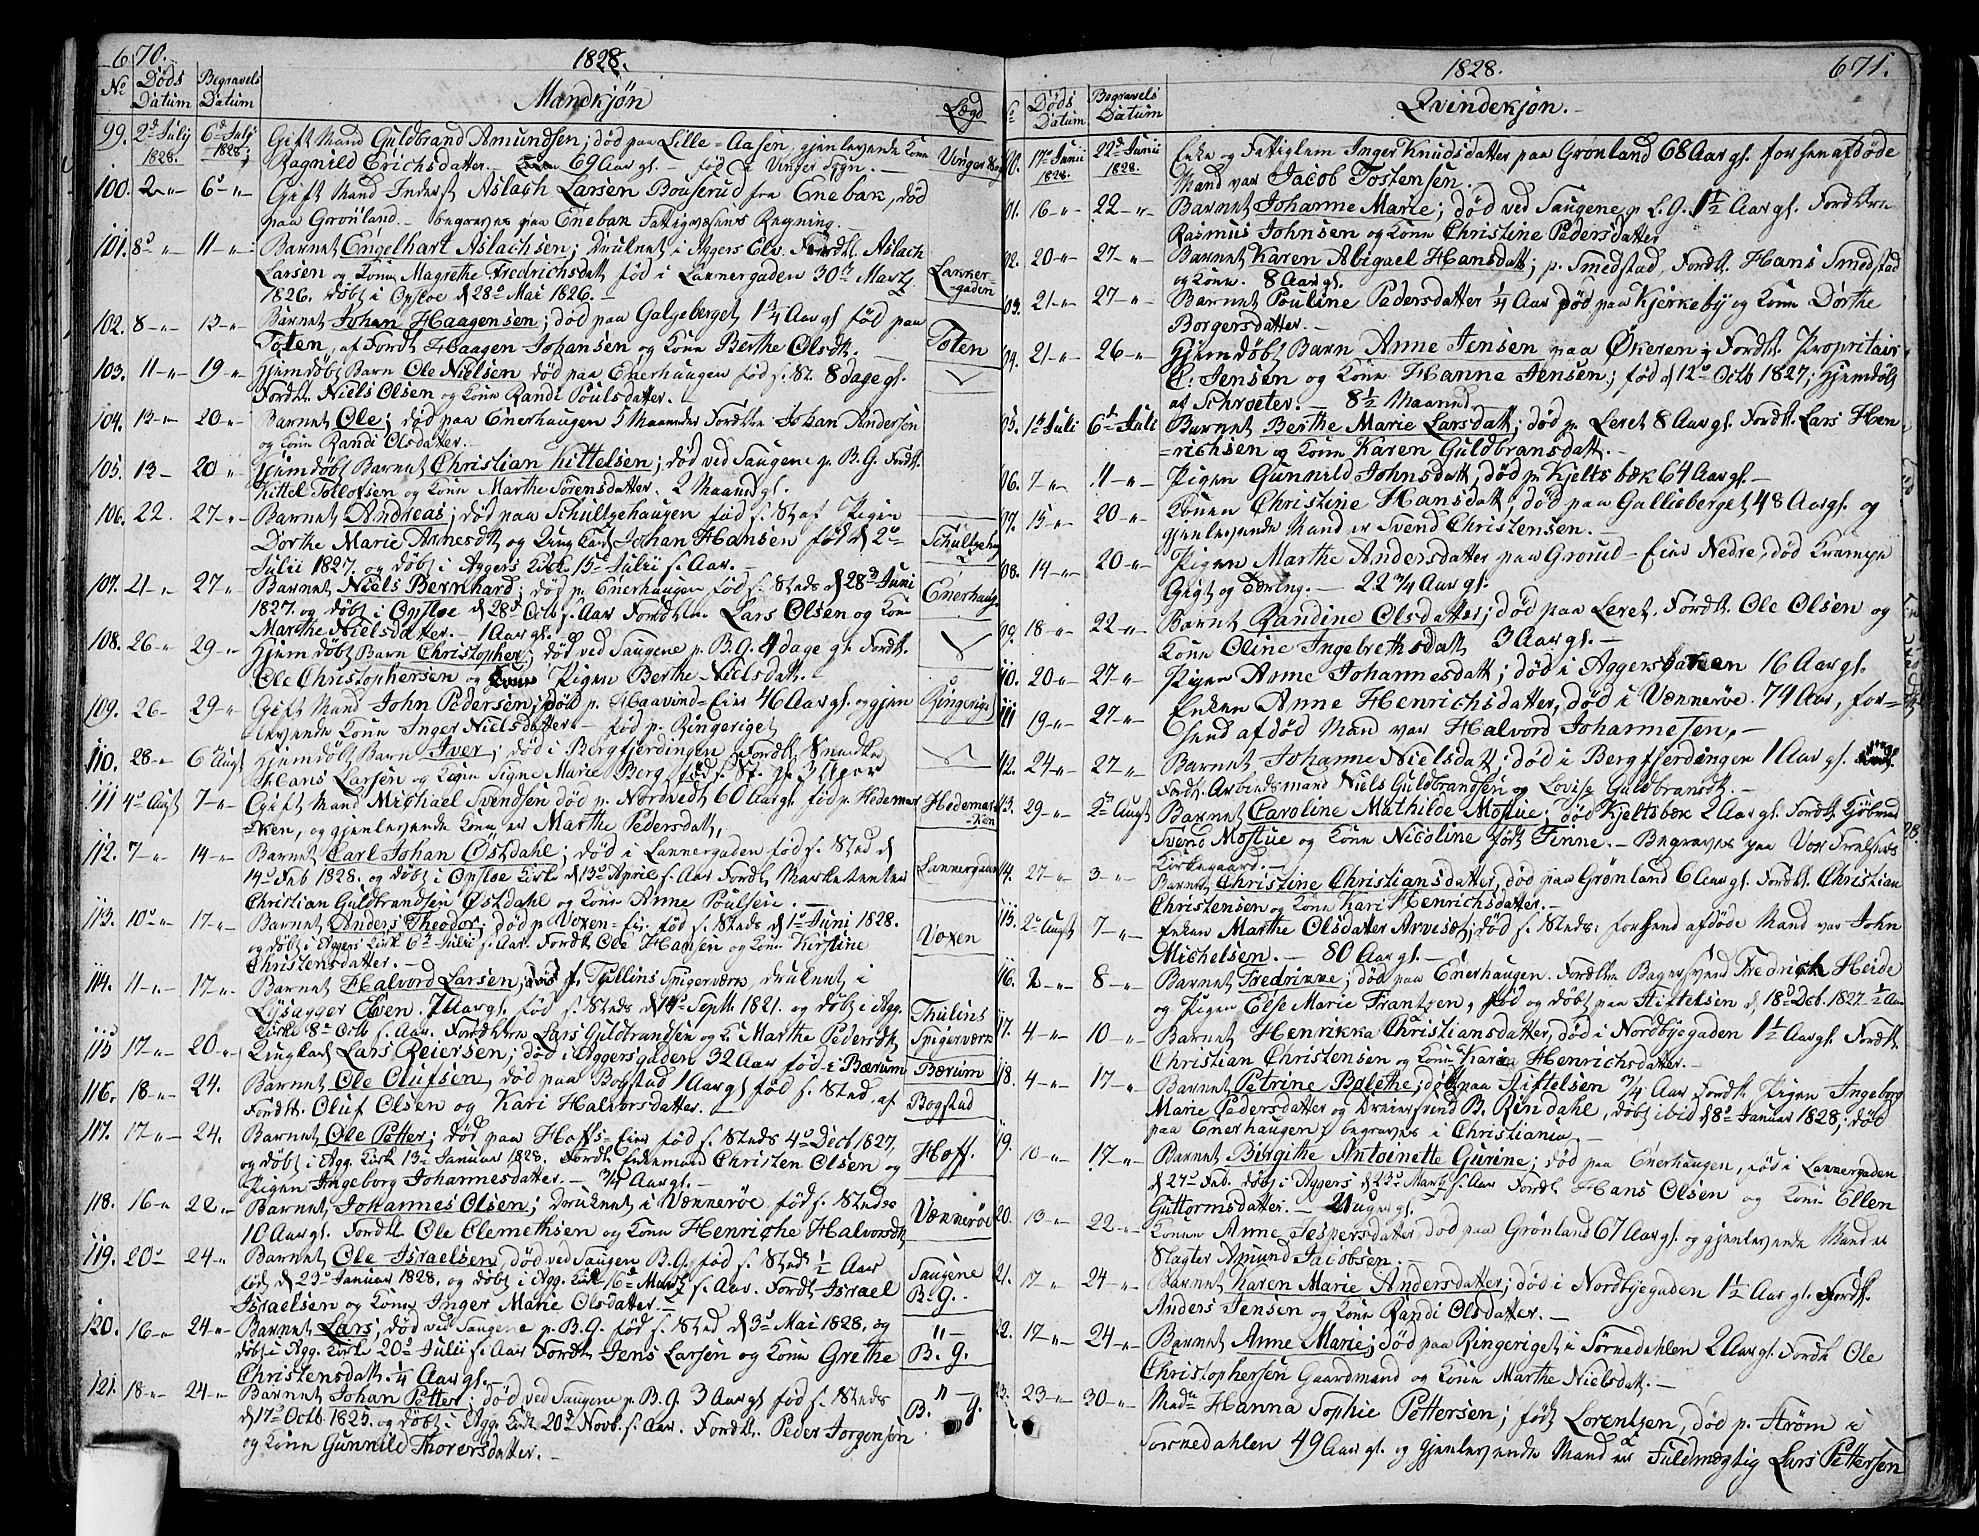 670. 1828.
No Døds Datum Begravels Datum Mandkjøn Lægd
99. 2d Julij 1828. 6d Julij 1828. Gift Mand Guldbrand Amundsen; død paa Lille-Aasen, gjenlevende Kone
Ragnild Erichsdatter. 69 Aar gl. fød i Vinger Sogn. Vinger
100. 2 -"- 6d -"- Gift Mand Inderst Aslach Larsen Bouserud fra Enebak, død
paa Grønland - begraves paa Enebak Fattigvæsens Regning.
101. 8d -"- 11 -"- Barnet Engelhart Aslachsen; druknet i Aggers Elv. Fordt. Aslach
Larsen og Kone Magrethe Fredrichsdatt fød i Lakkergaden 30te Martz Lakkergaden
1826. døbt i Opsloe d 28d Mai 1826.
102. 8 -"- 13 -"- Barnet Johan Haagensen; død paa Galgeberget 1 3/4 Aar gl fød paa
Toten, af Fordt Haagen Johansen og Kone Berthe Olsdt. Toten
103. 11 -"- 19 -"- Hjemdøbt Barn Ole Nielsen død paa Enerhaugen fød s. St. 8 dage gl.
Fordt. Niels Olsen og Kone Randi Poulsdatter.
104. 13 -"- 20 -"- Barnet Ole; død paa Enerhaugen 5 Maaneder Fordtre Johan Andersen
og Kone Randi Olsdatter.
105. 13 - 20 " Hjemdøbt Barnet Christian Kittelsen; død ved Saugene p. B.G. Fordt.
Kittel Tollofsen og Kone Marthe Sørensdatter. 2 Maan gl.
106. 22 27 -"- Barnet Andreas; død paa Schultzehaugen fød s. St af Pigen
Dorthe Marie Arnesdt og Ungkarl Johan Hansen fød d 2d Schultzehg
Julii 1827. og døbt i Aggers Kirk. 15d Julii s. Aar.
107. 21 -"- 27 " Barnet Niels Bernhard; død p. Enerhaugen fød s. Steds d 28d Juni Enerhaug
1827. og døbt i Opsloe d 28d Octb s. Aar Fordtrene Lars Olsen og Kone
Marthe Nielsdatter. 1 Aar gl.
108. 26 -"- 29 -"- Hjemdøbt Barn Christopher; død ved Saugene p B.G. 4 dage gl. Fordt.
Ole Christophersen og Pigen Berthe Nielsdatt.
109. 26 - 29 -"- Gift Mand John Pedersen; død p. Haavind-Eier 46 Aar gl. og gjen Ringerige
levende Kone Inger Nielsdatter - fød p. Ringeriget
110. 28 -"- 6d Augt Hjemdøbt Barn Iver; død i Bergfjerdingen Fordt. Snedker
Hans Larsen og Kone Signe Marie Berg, fød s. St. gl. 3 Uger
111 4d Augt 7 -"- Gift Mand Michael Svendsen død p. Nordvedt 60 Aar gl. fød p. Hedemar Hedemarken
ken, og gjenlevende Kone er Marthe Pedersdatt,
112. 7 -"- 14 -"- Barnet Carl Johan Østdahl; død i Lakkergaden fød s. Sted d Lakkergaden
14d Feb 1828. og døbt i Opsloe Kirke d 13d April s. Aar Fordt Marketenter
Christian Guldbrandsen Østdahl og Kone Anne Poulsen.
113. 10d -"- 17 -"- Barnet Anders Theodor; død p. Voxen-Eie. fød s. Steds d 1d Juni 1828. Voxen
og døbt i Aggers Kirk 6d Julii s. Aar. Fordt Ole Hansen og Kone Kirstine
Christensdatter.
114. 11 -"- 17 -"- Barnet Halvord Larsen, død p. Tullins Spigerværk druknet i
Lysagger Elven. 7 Aar gl. fød s. Steds d 14d Septb 1821. og døbt i Agg. Thulins
Kirke 8d Octb s. Aar. Fordtrene Lars Guldbrandsen og K. Marthe Pedersdt Spigerværk
115 17 -"- 20 -"- Ungkarl Lars Reiersen; død i Aggersgaden 32 Aar fød i Bærum Bærum
116. 18 -"- 24. Barnet Ole Olufsen, død paa Bogstad 1 Aar gl fød s. Sted af
Fordt. Oluf Olsen og Kari Halvorsdatter. Bogstad
117. 17 -"- 24. Barnet Ole Petter; død paa Hoffs-Eier fød s. Steds 4d Decb 1827, Hoff.
og døbt i Agg. Kirk 13d Januar 1828. Fordt Enkemand Christen Olsen og
Pigen Ingeborg Johannesdatter. 3/4 Aar gl.
118. 16 -"- 22 -"- Barnet Johannes Olsen; druknet i Vækkerøe fød s. Steds Vækkerøe
10 Aar gl. Fordt. Ole Clemethsen og Kone Henriche Halvorsdt
119. 20d 24 -"- Barnet Ole Israelsen, død ved Saugen B.G. fød s. Steds 1/2 Aar Saugene
fød d 23d Januar 1828. og døbt i Agg. Kirk 16d Martz s. Aar. Fordt Israel B.G.
Israelsen og Kone Inger Marie Olsdatter.
120. 16 -"- 24 -"- Barnet Lars; død ved Saugene p. B.G. fød s. Sted d 3d Mai 1828. og "-
døbt i Agg. Kirke 20d Julii s. Aar Fordt Jens Larsen og Kone Grethe B.G.
Christensdatt. 1/4 Aar gl.
121. 18 -"- 24 -"- Barnet Johan Petter; død ved Saugene p. B.G. 3 Aar gl fød s. Steds "-
d 17d Octb. 1825. og døbt i Agg. Kirk 20d Novb. s. Aar. Fordt. Peder Jørgensen B. G.
og Kone Gunnild Thorersdatter.
1828. 671.
No Døds Datum Begravels Datum Qvindekjøn.
00. 17d Junii 1828. 22d Junii 1828. Enke og Fattiglem Inger Knudsdatter paa Grønland 68 Aar gl. forhen afdøde
Mand var Jacob Tostensen.
01. 16 -"- 22 -"- Barnet Johanne Marie; død ved Saugene p L.G. 1 1/2 Aar gl. Fordtrne
Rasmus Johnsen og Kone Christine Pedersdatter
02. 20 -"- 27 -"- Barnet Karen Abigael Hansdatt; p. Smedstad, Fordt. Hans Smedstad
og Kone. 8 Aar gl.
03. 21 -"- 27 -"- Barnet Pouline Pedersdatter 1/4 Aar død paa Kjerkeby og Kone Dorthe
Borgersdatter.
04. 21 -"- 26 -"- Hjemdøbt Barn Anne Jensen paa Økeren; Fordt. Propritair
C. Jensen og Kone Hanne Jensen; fød d 12d Octb 1827; hjemdøbt
af Schrøeter. - 8 1/2 Maaned.
05. 1d Juli 6d Juli Barnet Berthe Marie Larsdatt; død p. Leret 8 Aar gl. Fordt. Lars Hen
richsen og Kone Karen Guldbransdatt.
06. 7 -"- 11 -"- Pigen Gunnild Johnsdatt, død p. Kjelts bek 64 Aar gl.
07. 15 -"- 20 -"- Konen Christine Hansdatt, død paa Gallieberget 48 Aar gl. og
gjenlevende Mand er Svend Christensen.
08. 14 -"- 20 -"- Pigen Marthe Andersdatter paa Grorud-Eier Nedre, død Krampe
Gigt og Tæring. - 22 3/4 Aar gl.
09. 18 -"- 22 -"- Barnet Randine Olsdatter; død paa Leret. Fordt. Ole Olsen og
Kone Oline Ingelrethsdatt 3 Aar gl.
10. 20 -"- 27 -"- Pigen Anne Johannesdatt; død i Aggersbakken 16 Aar gl.
111 19 -"- 27 -"- Enken Anne Henrichsdatter, død i Vækkerøe 74 Aar, for=
hend afdød Mand var Halvord Johannesen,
12. 24 -"- 27 -"- Barnet Johanne Nielsdatt; død i Bergfjerdingen 1 Aar gl.
Fordt. Arbeidsmand Niels Guldbrandsen og Lovise Guldbransdt.
13. 29 -"- 2d Augt Barnet Caroline Mathilde Mostue; død Kjeltsbek 2 Aar gl. Fordt Kjøbmd
Svend Mostue og Kone Nicoline født Finne. - Begraves paa Vor Frelsers
Kirkegaard.
14. 27 -"- 3 -"- Barnet Christine Christiansdatter, død paa Grønland 6 Aar gl. Fordt. Christian
Christensen og Kone Kari Henrichsdatter.
115. 2d Augt 7 -"- Enken Marthe Olsdatter Arvesæt; død s. Steds: forhend afdøde Mand var John
Michelsen. 80 Aar gl.
16. 2 -"- 8 -"- Barnet Fredrikke; død paa Enerhaugen. Fordtre Bagersvend Fredrich Heide
og Pigen Else Marie Frantzen, fød og døbt paa Stiftelsen d 18d Dcb. 1827. 1/2 Aar
17. 4 -"- 10 -"- Barnet Henrikka Christiansdatter, død i Nordbyegaden 1 1/2 Aar gl. Fordt.
Christian Christensen og Kone Karia Henrichsdatter.
18. 4 -"- 17 -"- Barnet Petrine Bolethe; død paa Stiftelsen 3/4 Aar Fordt. Pigen Ingeborg
Marie Pedersdatter og Dreiersvend B. Rindahl, døbt ibid d 8d Januar 1828; død
paa Enerhaugen; begraves i Christiania.
19. 10 -"- 17 -"- Barnet Birgithe Antoinette Gurine; død paa Enerhaugen, fød i Lakkergaden
d 27d Feb. døbt i Aggers d 23d Martz s. Aar Fordt Hans Olsen og Kone Ellen
Guttormsdatter. 21 Uger gl.
20. 13 -"- 22 -"- Konen Anne Jespersdatter død paa Grønland 67 Aar gl. og gjenlevende Mand er
Slagter Amund Jacobsen.
21. 17 -"- 24 -"- Barnet Karen Marie Andersdatter; død i Nordbyegaden 1 1/2 Aar gl. Fordt.
Anders Jensen og Kone Randi Olsdatter.
22. 17 -"- 24 -"- Barnet Anne Marie; død paa Ringeriget i Sørkedahlen 2 Aar gl. Fordt Ole
Christophersen Gaardmand og Kone Marthe Nielsdatt.
23. 23 -"- 30 -"- Made Hanna Sophie Pettersen; født Lorentzen, død p. Strøm i
Sørkedahlen 49 Aar gl. og gjenlevende Mand er Fuldmægtig Lars Pettersen